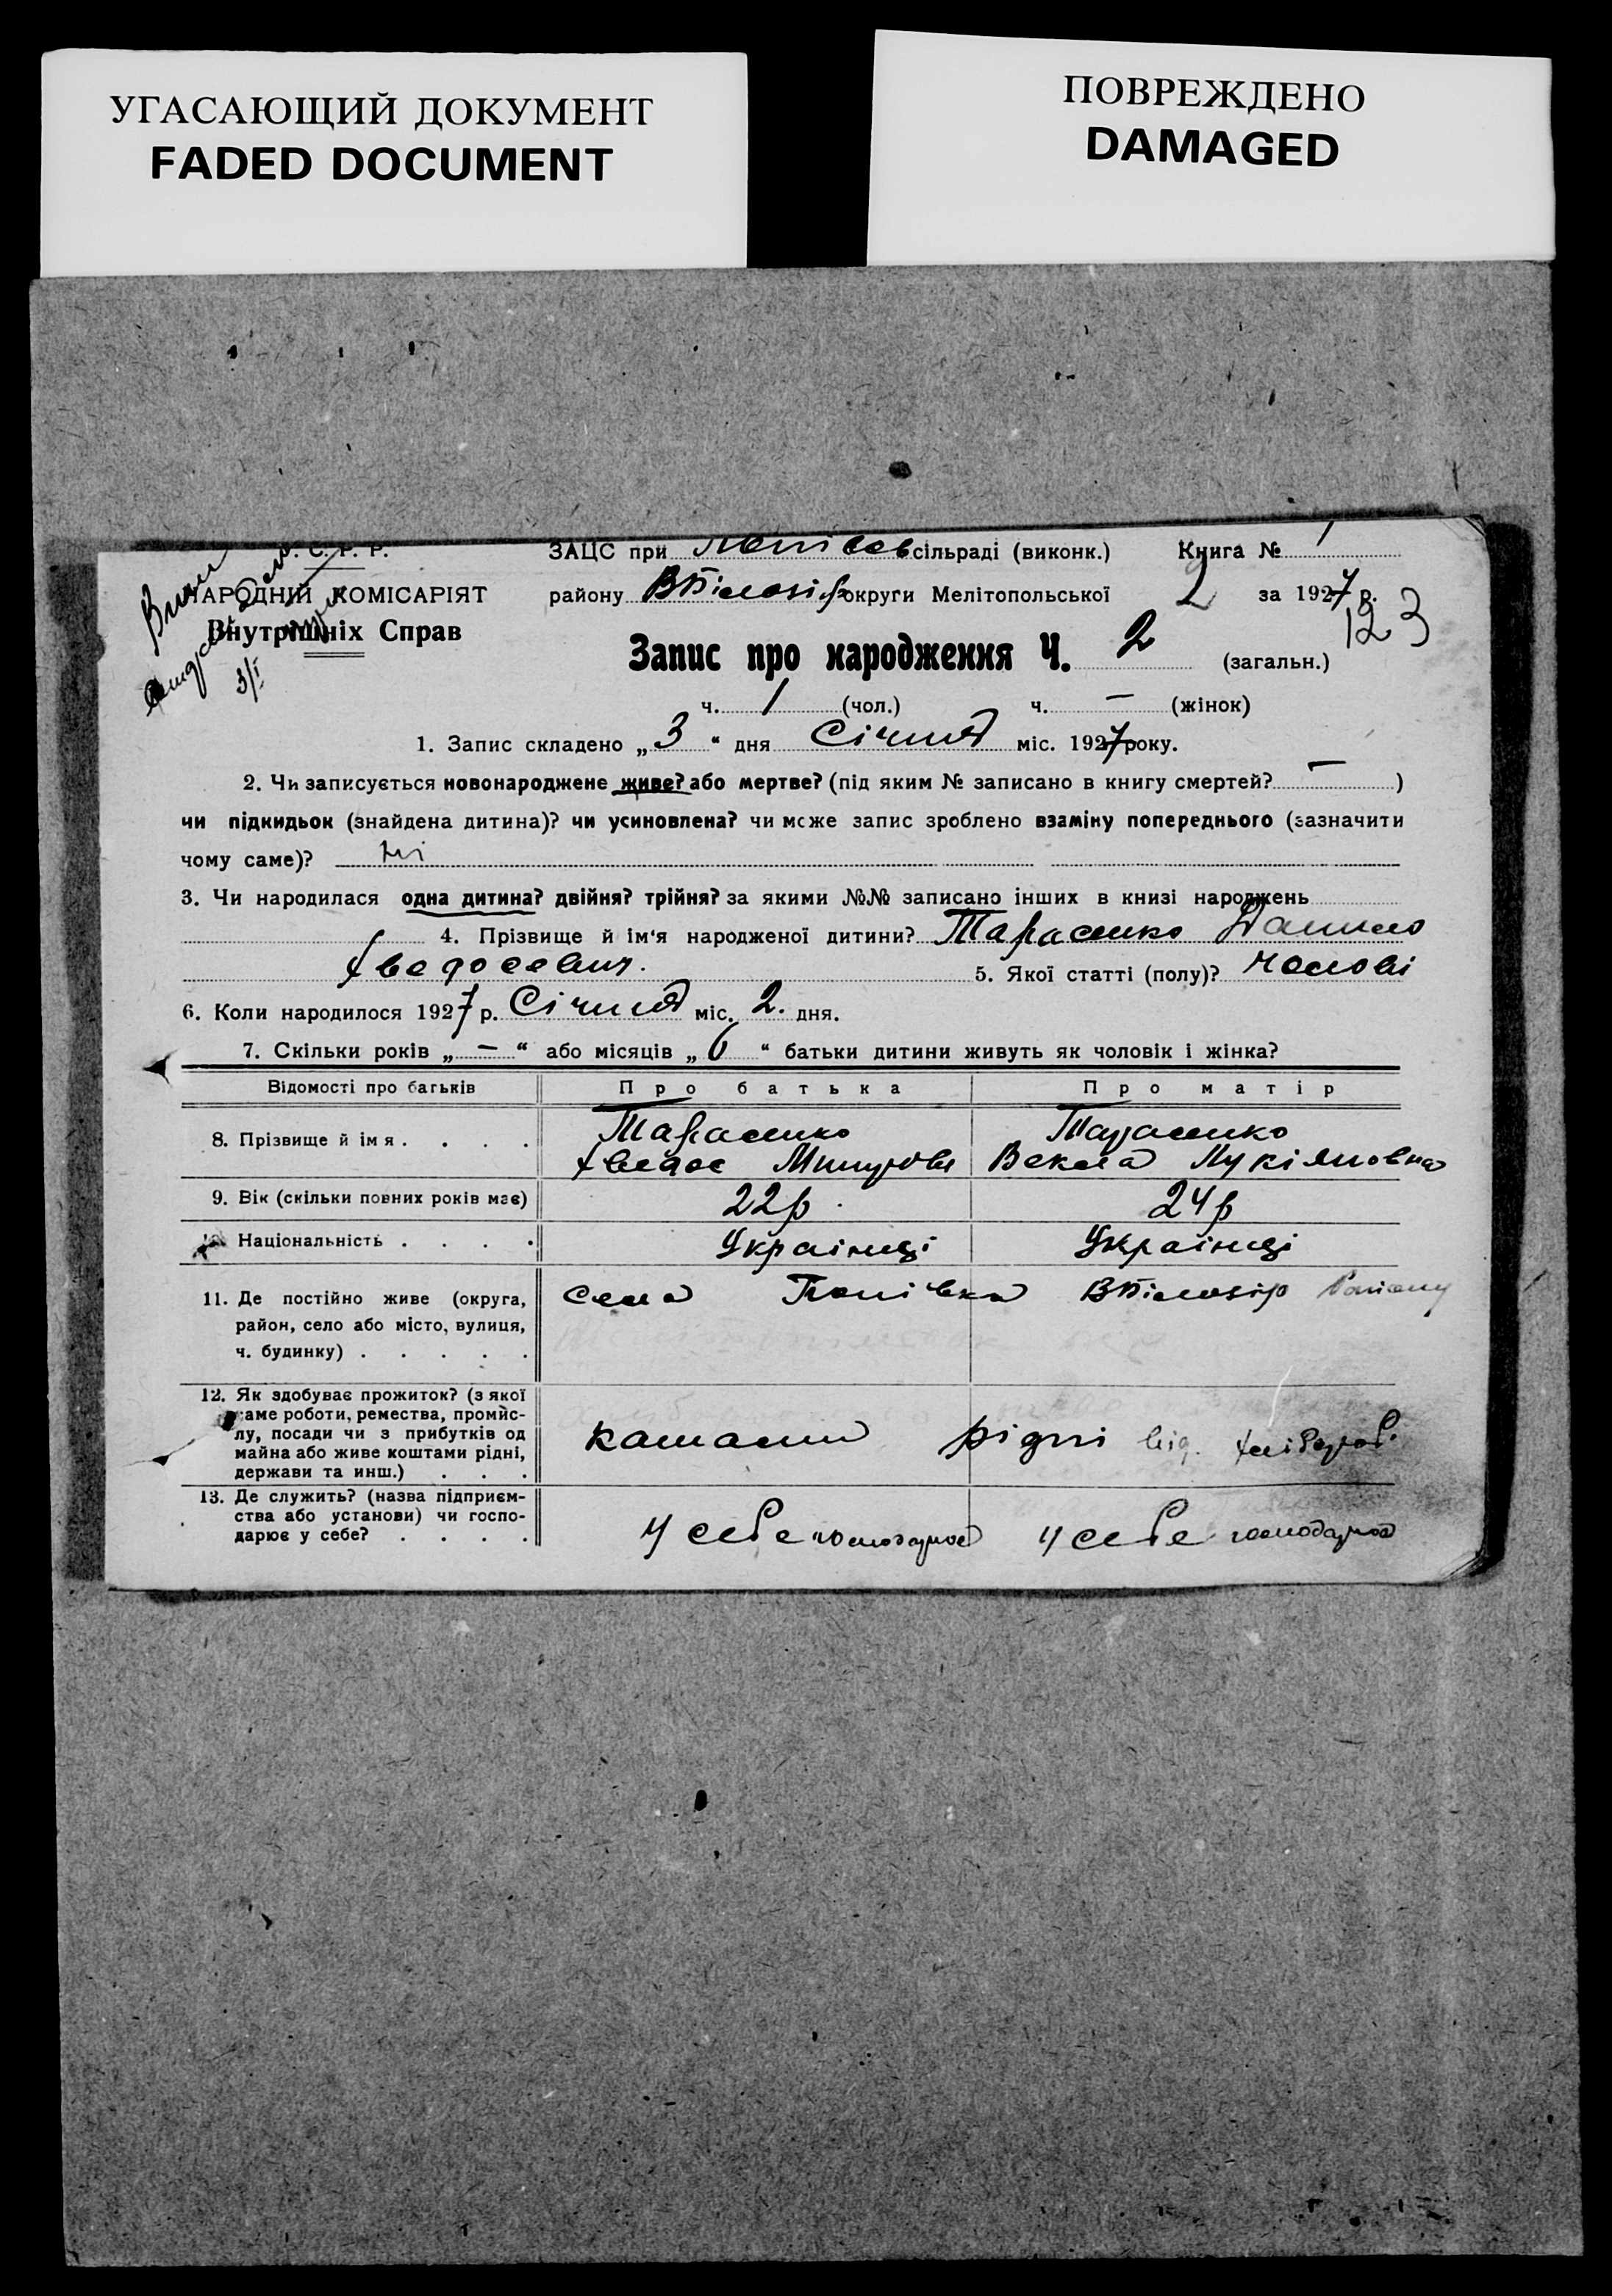 УГАСАЮЩИЙ ДОКУМЕНТ
FADED DOCUMENT
ПОВРЕЖДЕНО
DAMAGED
С. Р. Р.
НАРОДНІЙ КОМІСАРІЯТ
Внутрішніх Справ
3/I
ЗАЦС при сільраді (виконк.) Книга № 1
району ВБілозір округи Мелітопольської 2 за 1927 р.
123
Запис про народження Ч. 2 (загальн.)
ч. 1 (чол.) ч. — (жінок)
1. Запис складено „3“ дня Січня міс. 1927 року.
2. Чи записується новонароджене живе? або мертве? (під яким № записано в книгу смертей? — )
чи підкидьок (знайдена дитина)? чи усиновлена? чи може запис зроблено взаміну попереднього (зазначити
чому саме)? ні
3. Чи народилася одна дитина? двійня? трійня? за якими №№ записано інших в книзі народжень
4. Прізвище й ім‘я народженої дитини? Тарасенко Данило
Хведосевич. 5. Якої статті (полу)? чолові
6. Коли народилося 1927 р. Січня міс. 2. дня.
7. Скільки років „ — “ або місяців „ 6 “ батьки дитини живуть як чоловік і жінка?
Відомості про батьків Про батька Про матір
8. Прізвище й імя . . . . Тарасенко Тарасенко
Хведос Векла Лукіяновна
9. Вік (скільки повних років має) 22р. 24р
Національність . . . . Українці Українці
11. Де постійно живе (округа, Села Попівка ВБілозір Району
район, село або місто, вулиця,
ч. будинку) . . . . .
12. Як здобуває прожиток? (з якої
саме роботи, ремества, промис-
лу, посади чи з прибутків од
майна або живе коштами рідні, рідні від. хлібороб.
держави та инш.) . . .
13. Де служить? (назва підприєм-
ства або установи) чи госпо-
дарює у себе? . . . . У себе господарює У себе господарює